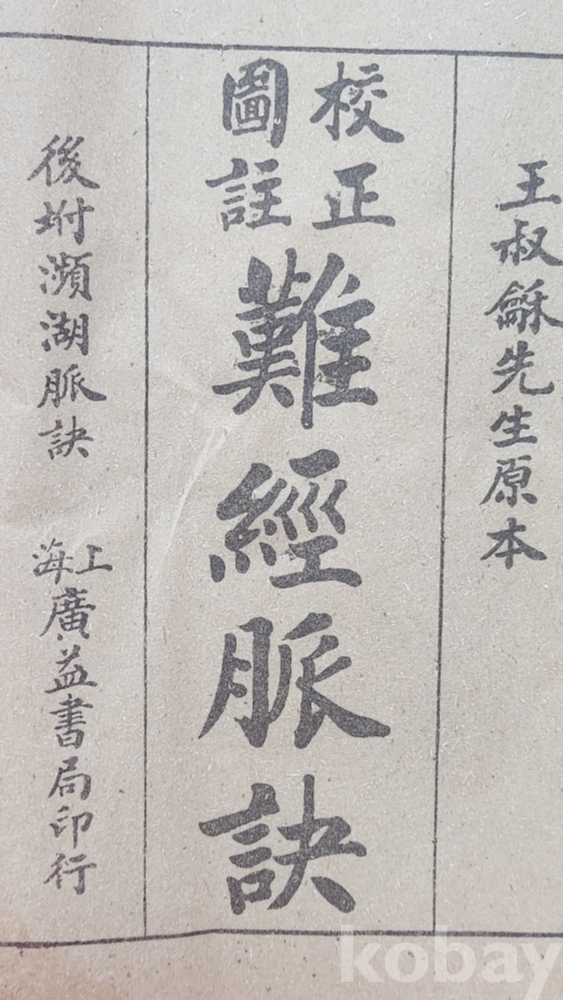 王叔龢先生原本
校正
圖註
難經脈訣
後坿瀕湖脈訣
上海
廣益書局印行
kobay